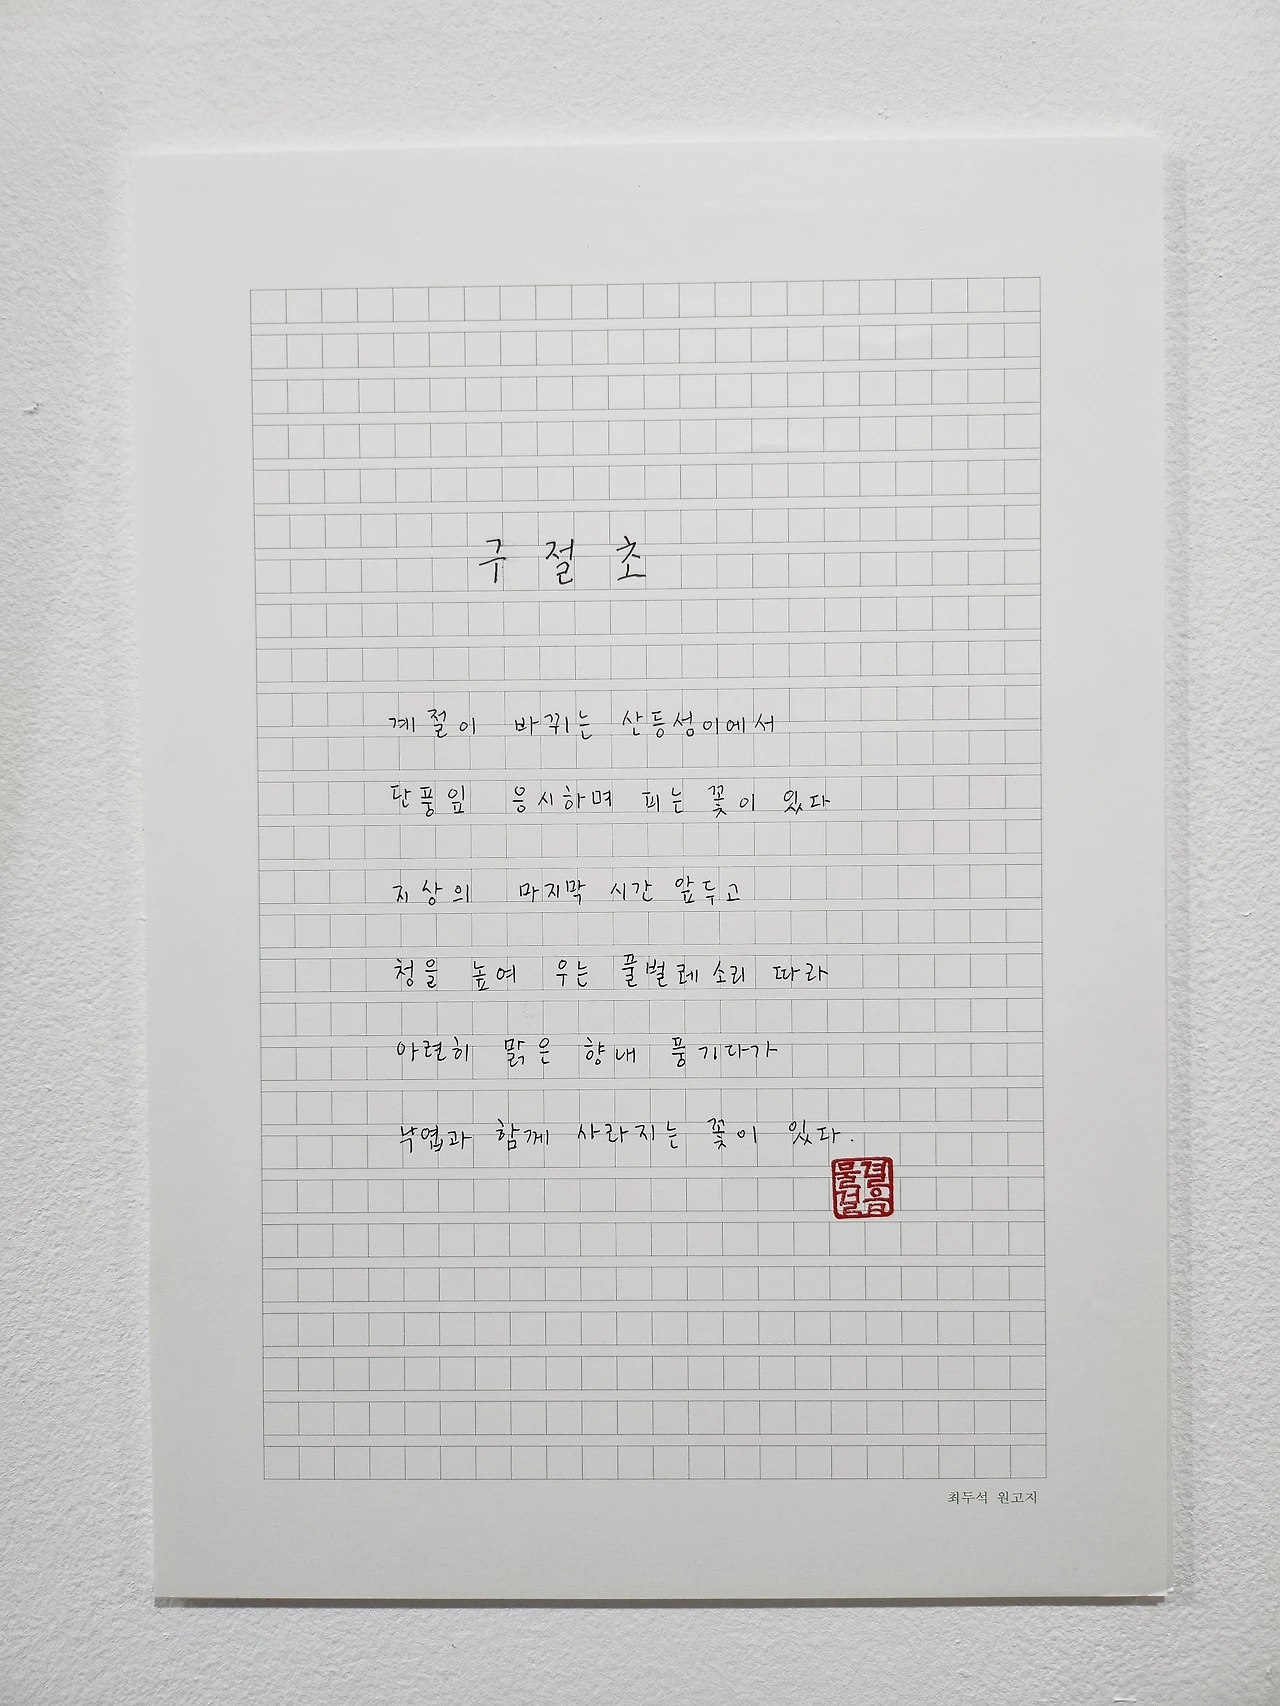 구절초
계절이 바뀌는 산등성이에서
단풍잎 응시하며 피는 꽃이 있다
지상의 마지막 시간 앞두고
청을 높여 우는 풀벌레 소리 따라
아련히 맑은 향내 풍기다가
부엽과 함께 사라지는 꽃이 있다.
물결
결음
최두석 원고지